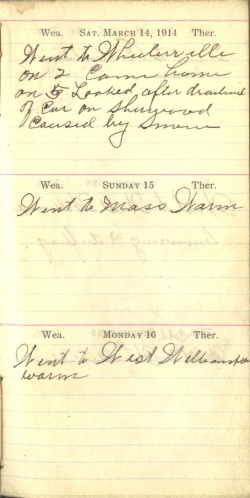 Wea. SAT. MARCH 14, 1914 Ther.
Went to Wheelerville
on 2 Came home
on 5 Looked after
of Car on Sherwood
Caused by
Wea. SUNDAY 15 Ther.
Went to Mass Warm
Wea. MONDAY 16 Ther.
Went to West
warm